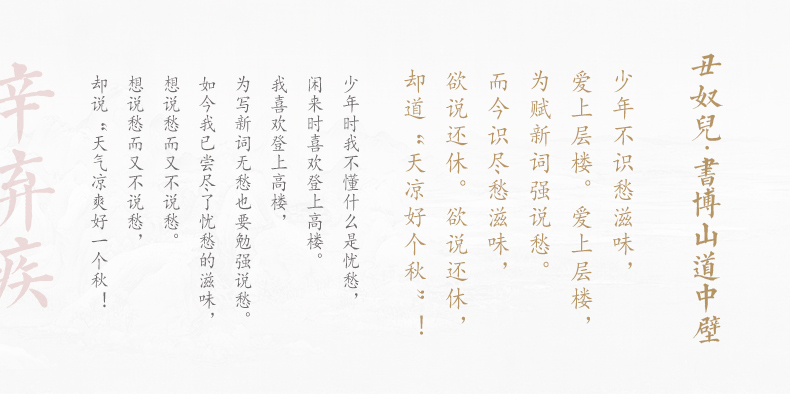 丑奴兒·書博山道中壁
少年不识愁滋味，
爱上层楼。爱上层楼，
为赋新词强说愁。
而今识尽愁滋味，
欲说还休。欲说还休，
却道“天凉好个秋”！
少年时我不懂什么是忧愁，
闲来时喜欢登上高楼。
我喜欢登上高楼，
为写新词无愁也要勉强说愁。
如今我已尝尽了忧愁的滋味，
想说愁而又不说愁。
想说愁而又不说愁，
却说“天气凉爽好一个秋！
辛弃疾